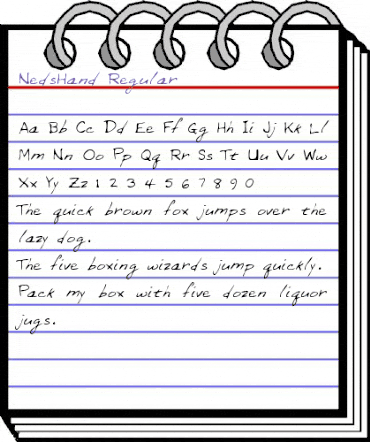 NedsHand Regular
Aa Bb Cc Dd Ee Ff Gg Hh Ii Jj Kk Ll
Mm Nn Oo Pp Qq Rr Ss Tt Uu Vv Ww
Xx Yy Zz 1 2 3 4 5 6 7 8 9 0
The quick brown fox jumps over the
lazy dog.
The five boxing wizards jump quickly.
Pack my box with five dozen liquor
jugs.